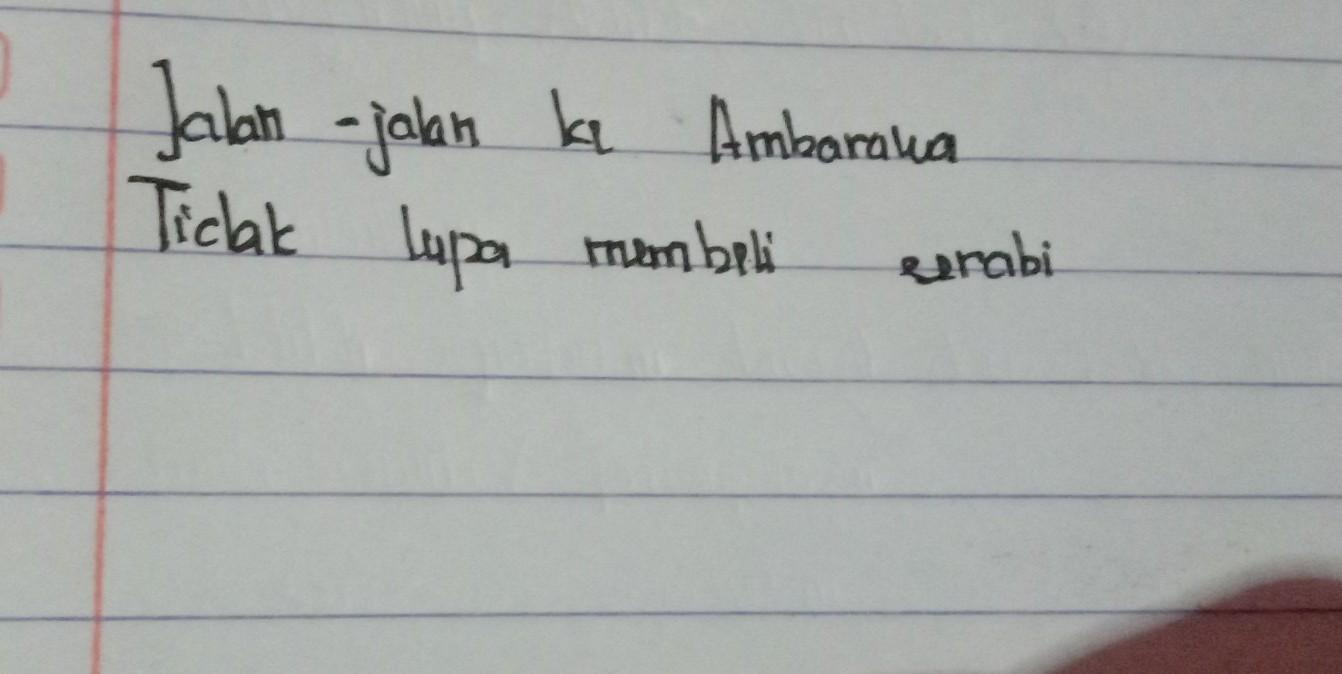 Jalan - jalan ke Ambarawa
Tidak lupa membeli serabi